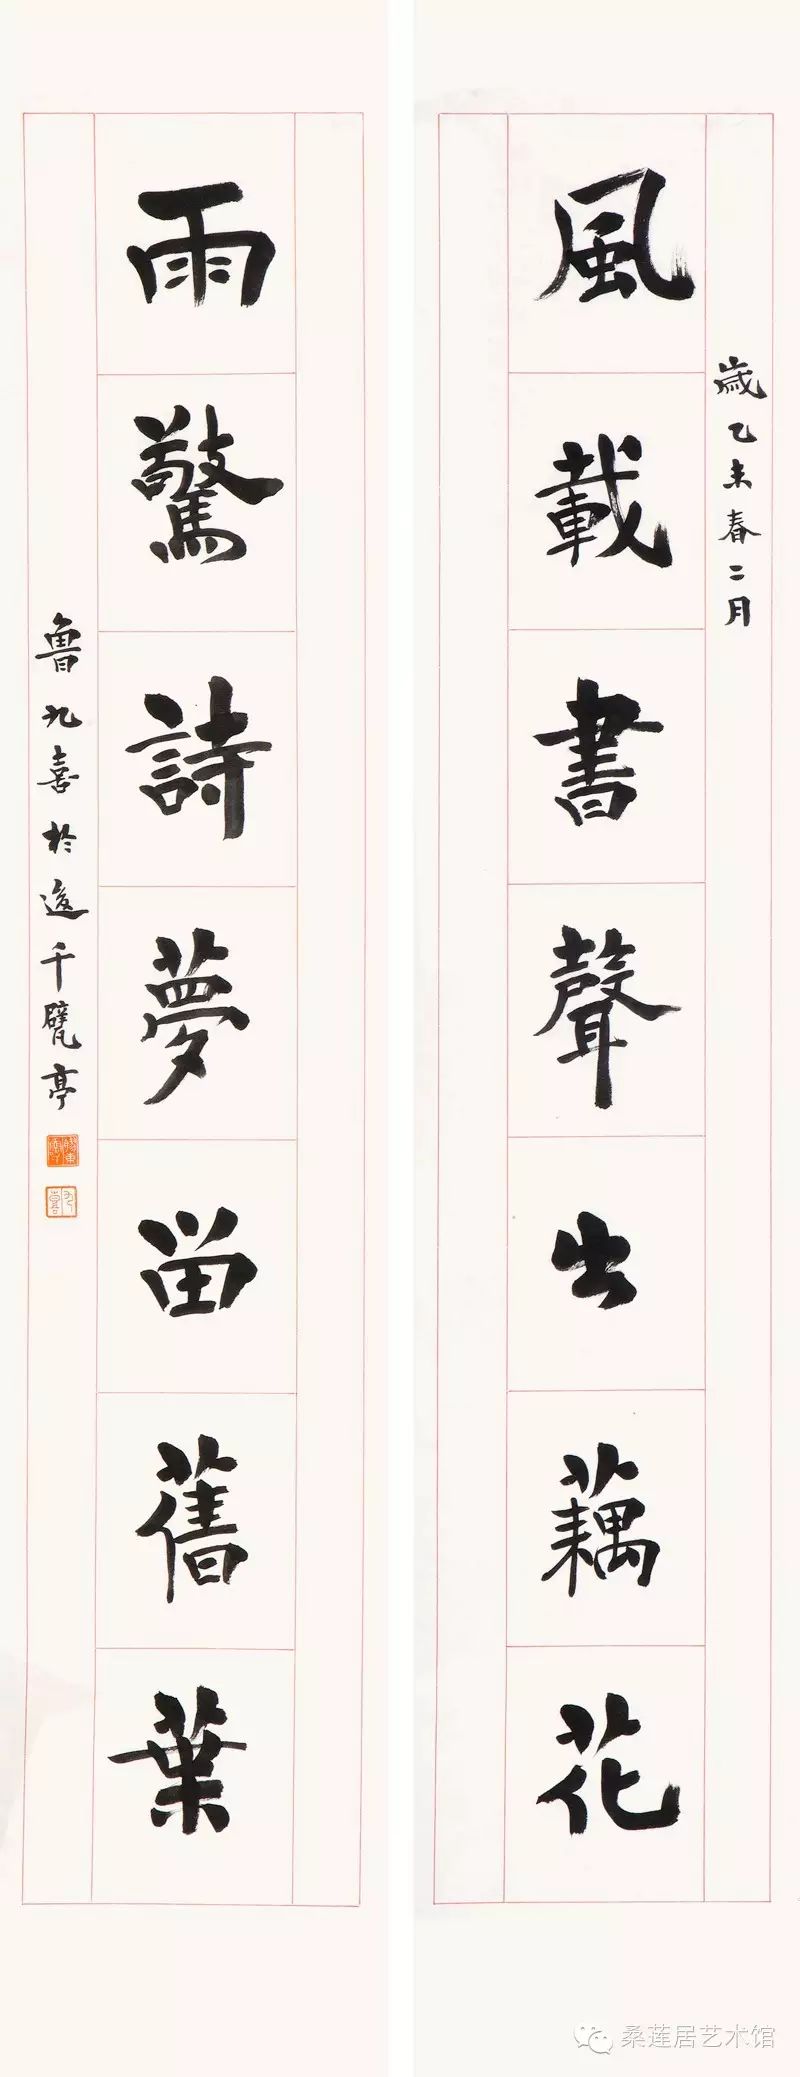 風載書聲出藕花
歲乙未春二月
雨驚詩夢留舊葉
魯九喜於後千甓亭
九喜
桑莲居艺术馆